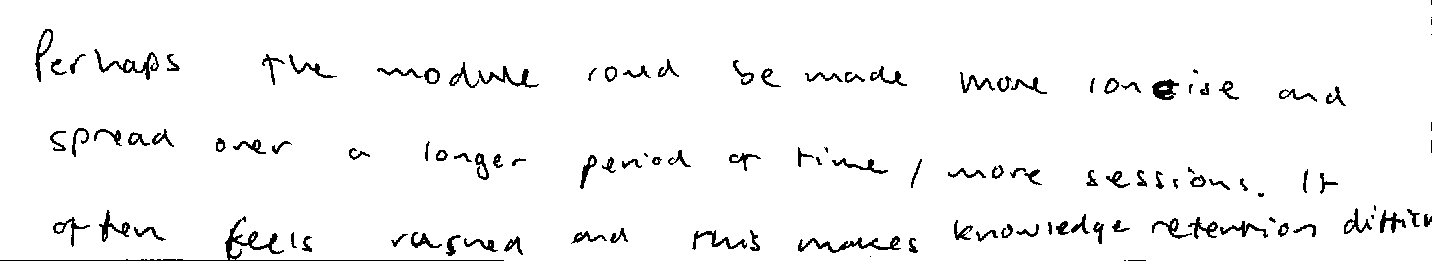 Perhaps the module could be made more concise and
spread over a longer period of time / more sessions. It
often feels rushed and this makes knowledge retention